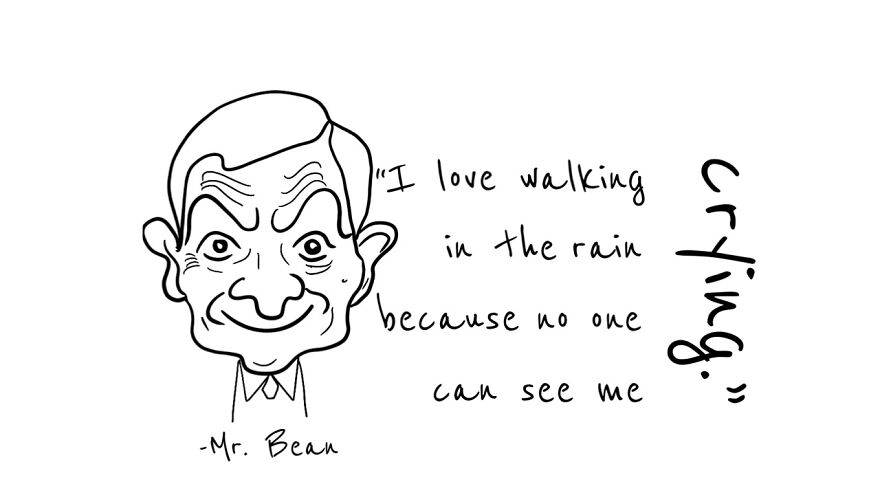 "I love walking
in the rain
because no one
can see me
crying."
-Mr. Bean